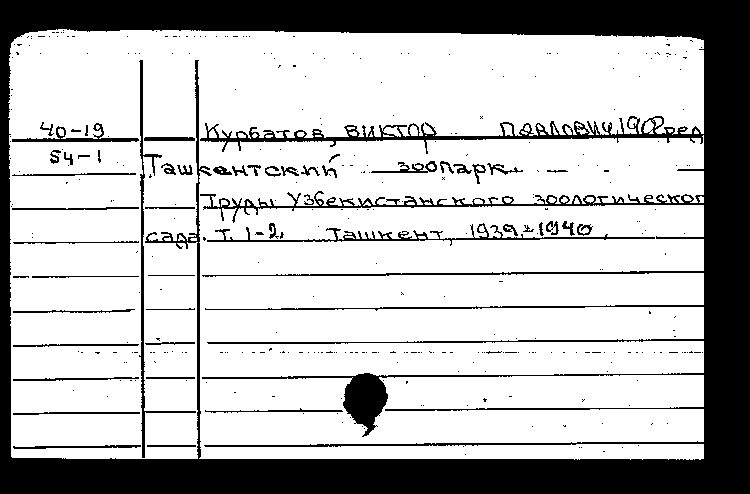 40-19 Курбатов, Виктор Павлович, ред
54-1 Ташкентский зоопарк.
Труды Узбекистанского зоологического
сада. Т. 1-2. Ташкент, 1939-1940.